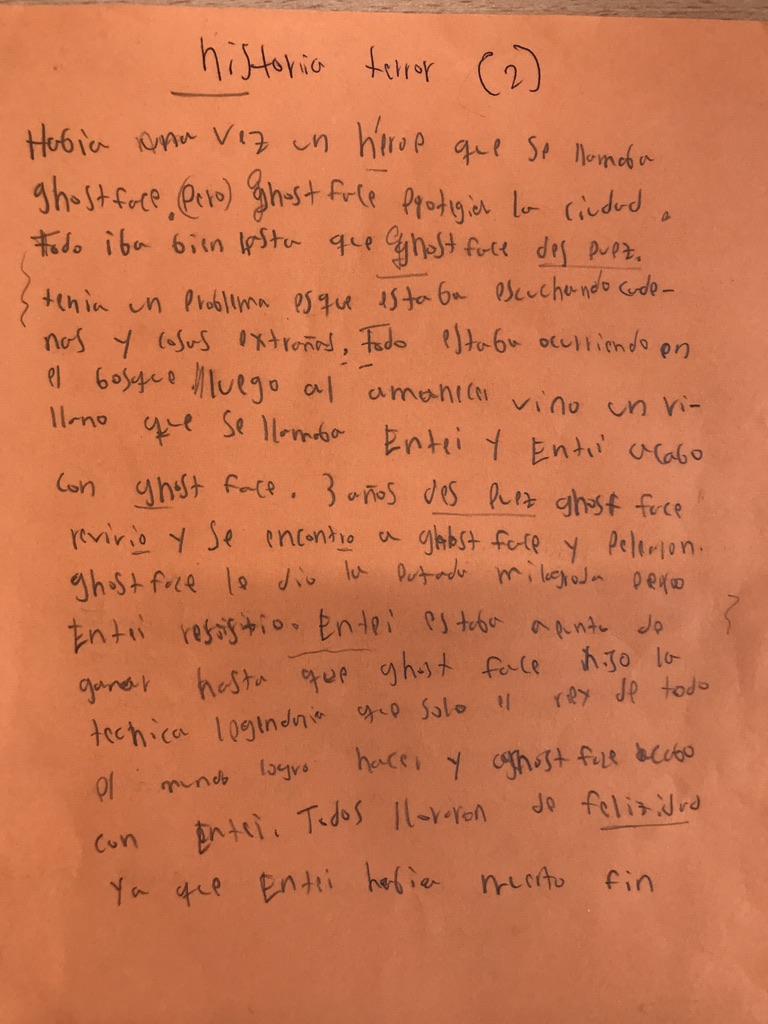 historia terror (2)
Había una vez un héroe que se llamaba
ghostface. (Pero) ghostface protegia la ciudad.
Todo iba bien hasta que ghostface des puez.
tenia un problema esque estaba escuchando cade-
nas y cosas extrañas. Todo estaba ocurriendo en
el bosque lluego al amanecer vino un vi-
llano que se llamaba Entei y Entei acabo
con ghost face. 3 años des puez ghost face
revirio y se encontro a ghost face y pelearon.
ghostface le dio la patada milagrosa pero
Entei resistio. Entei estaba apunto de
ganar hasta que ghost face hizo la
tecnica legendaria que solo el rey de todo
el mundo logro hacer y ghost face acabo
con Entei. Todos lloraron de felizidad
ya que Entei habia muerto fin